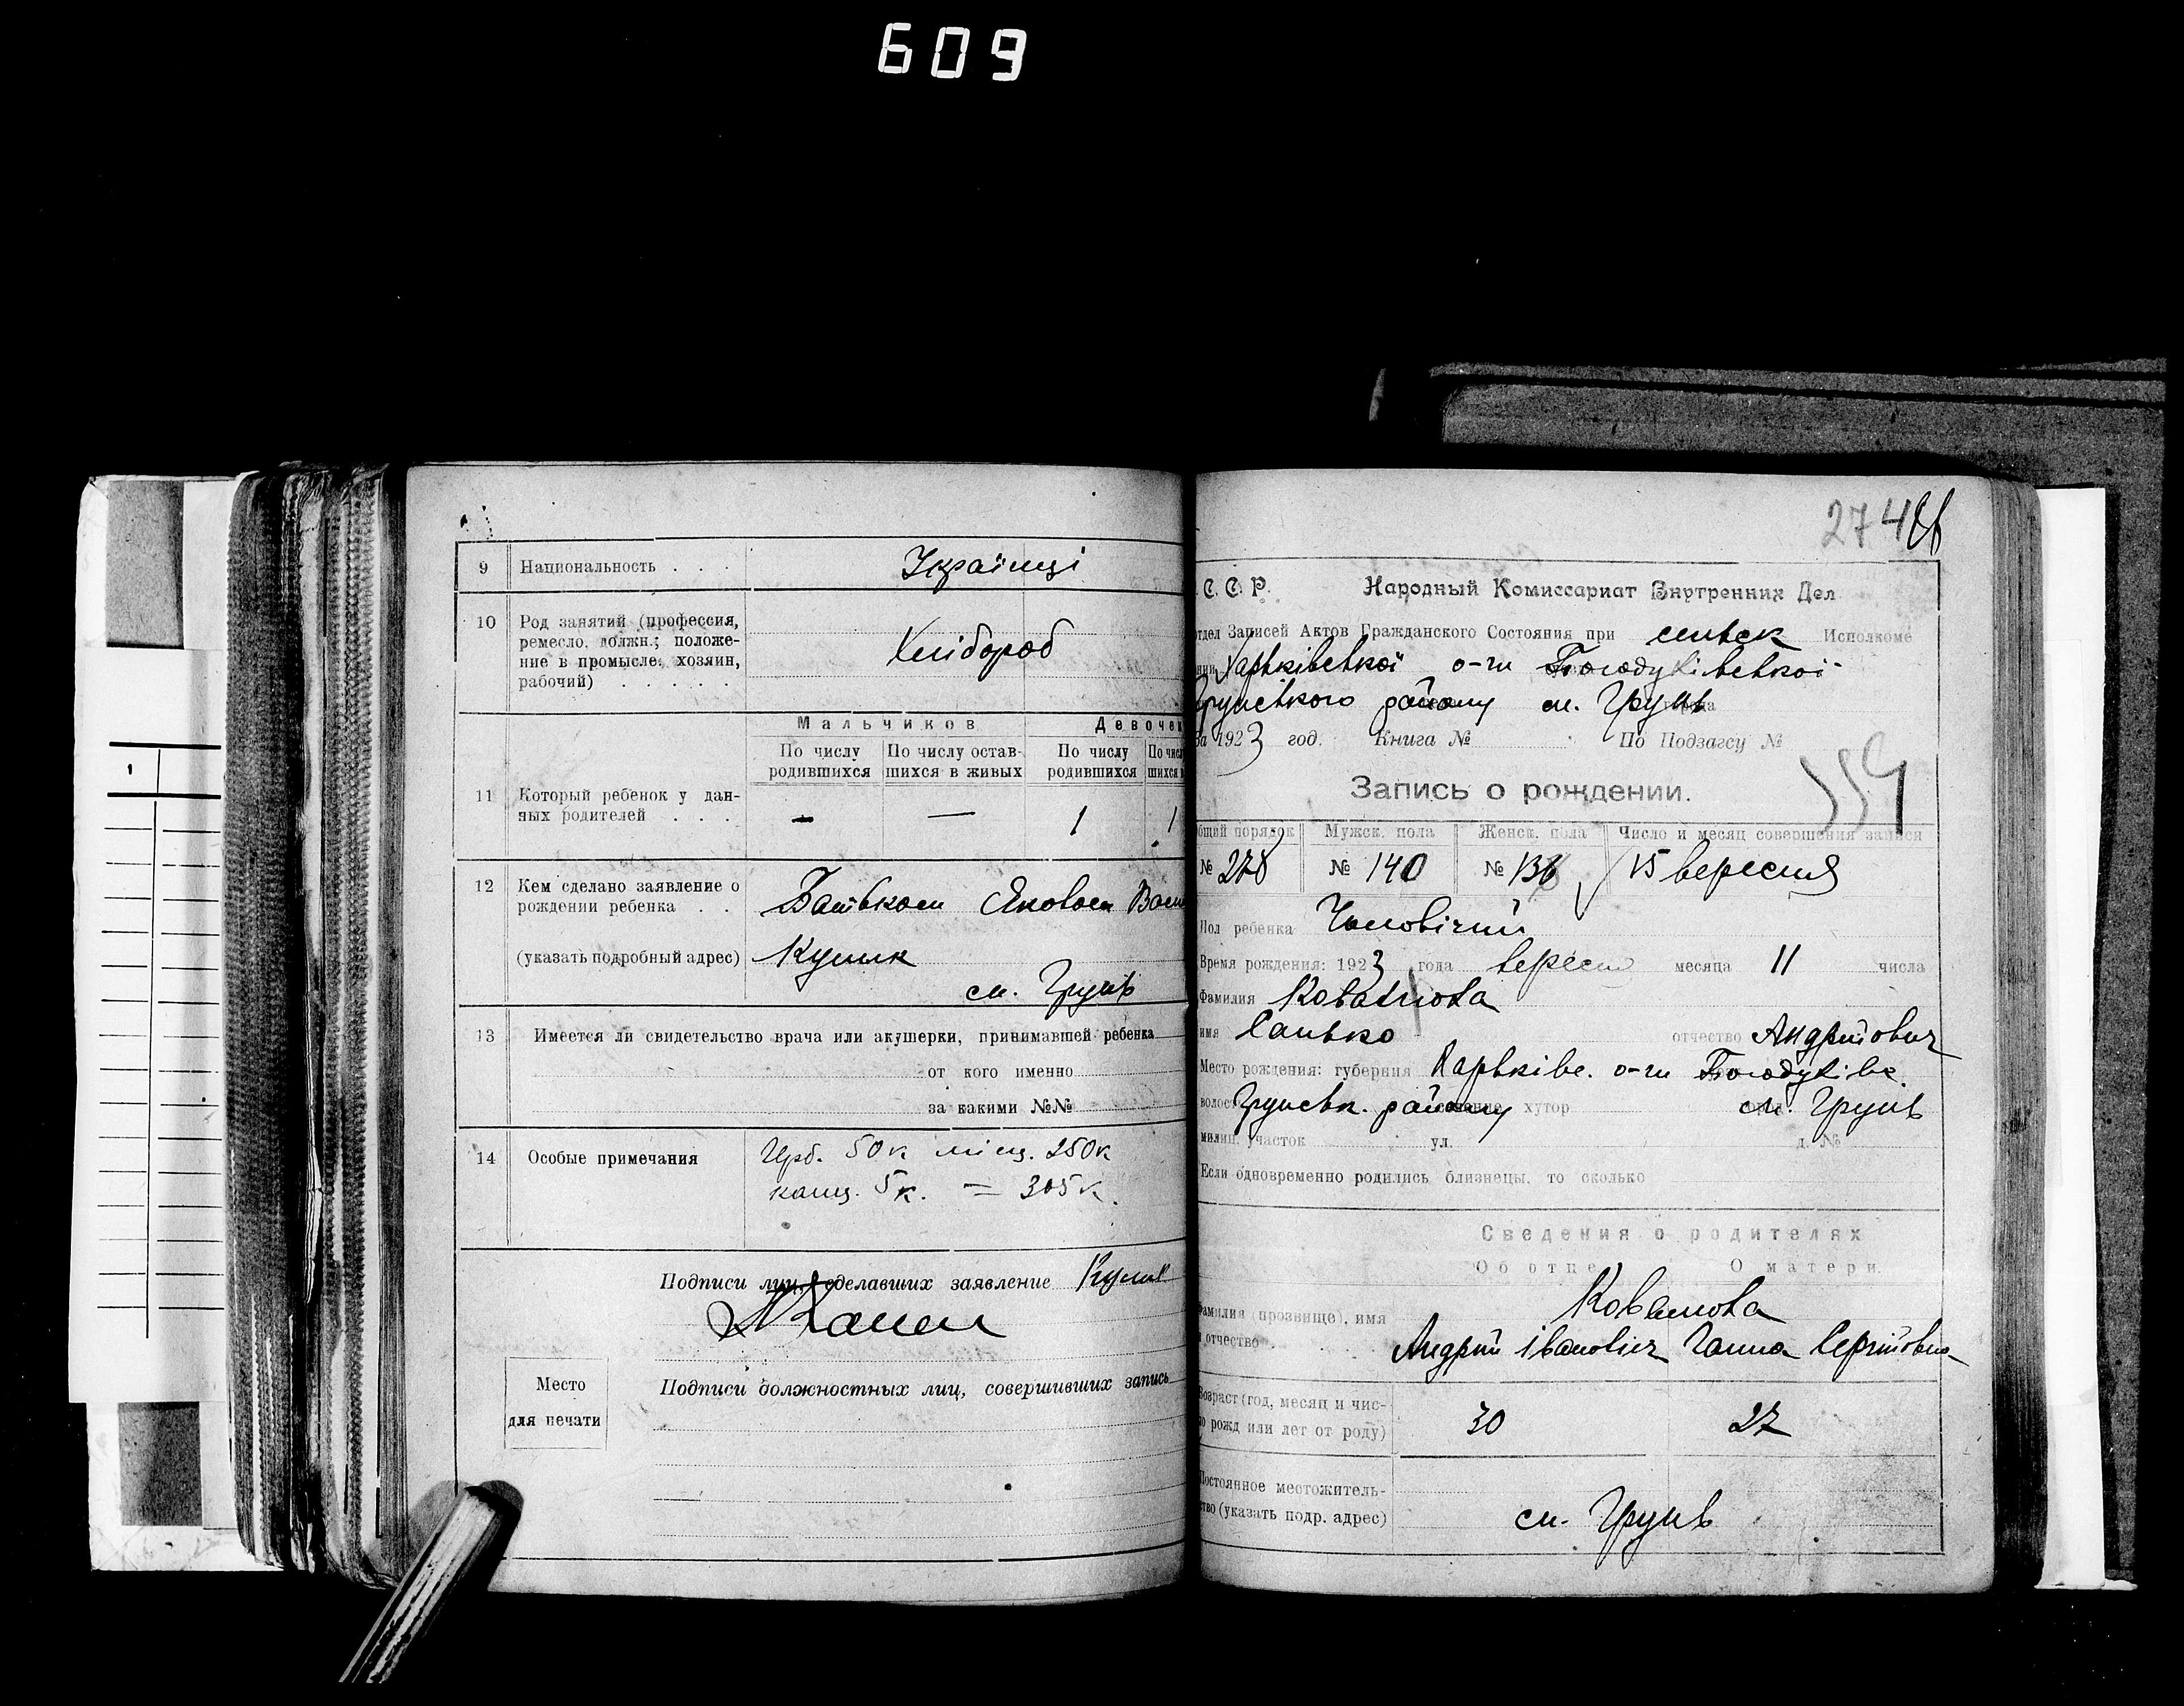 609
9 Национальность . . . Українці
10 Род занятий (профессия, ремесло, должн.; положе-
ние в промысле: хозяин,
рабочий) . . . . . Хлібороб
Мальчиков Девочек
По числу родившихся По числу остав-шихся в живых По числу родившихся По числ
11 Который ребенок у дан-
ных родителей . . . - — 1 1
12 Кем сделано заявление о
рождении ребенка . . Батьком Яковом Васи
(указать подробный адрес) Кулик
см. Грунь
13 Имеется ли свидетельство врача или акушерки, принимавшей ребенка
от кого именно
за какими №№
14 Особые примечания Герб. 50к міщ. 250к
канц. 5к. = 305к.
Подписи лиц, сделавших заявление Кулик
Место
для печати
Подписи должностных лиц, совершивших запись
274
С. С. Р. Народный Комиссариат Внутренних Дел
отдел Записей Актов Гражданского Состояния при сільвск Исполкоме
Харьківської о-ги Богодухівської
Грунського району см. Грунь
За 1923 год. Книга № По Подзагсу №
Запись о рождении. 559
Общий порядок Мужск. пола Женск. пола Число и месяц совершения записи
№ 278 № 140 № 138 15 вересня
Пол ребенка Чоловічий
Время рождения: 1923 года вересня месяца 11 числа
Фамилия Ковальова
имя Санько отчество Андрійович
Место рождения: губерния Харьківс. о-ги Богодухівс.
волость Грунськ. району селение, хутор см. Грунь
милиц. участок ул. д. №
Если одновременно родились близнецы, то сколько
Сведения о родителях
Об отце О матери.
Фамилия (прозвище), имя
и отчество . . . Ковальова
Андрій Іванович Ганна Сергіївна
Возраст (год, месяц и чис-
ло рожд или лет от роду) 30 27
Постоянное местожитель-
ство (указать подр. адрес) см. Грунь